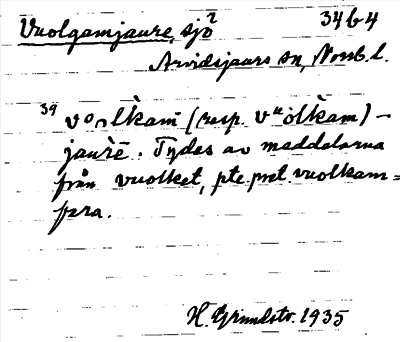 Vuolgamjaure, sjö 34b4
Arvidsjaurs sn, Norrb. l.
39 vₒₙlkam̄ (resp. vᵘòlkam) –
jaurē. Tydes av meddelarna
från vuolket, pte. pret. vuolkam=
fara.
H. Grundstr. 1935